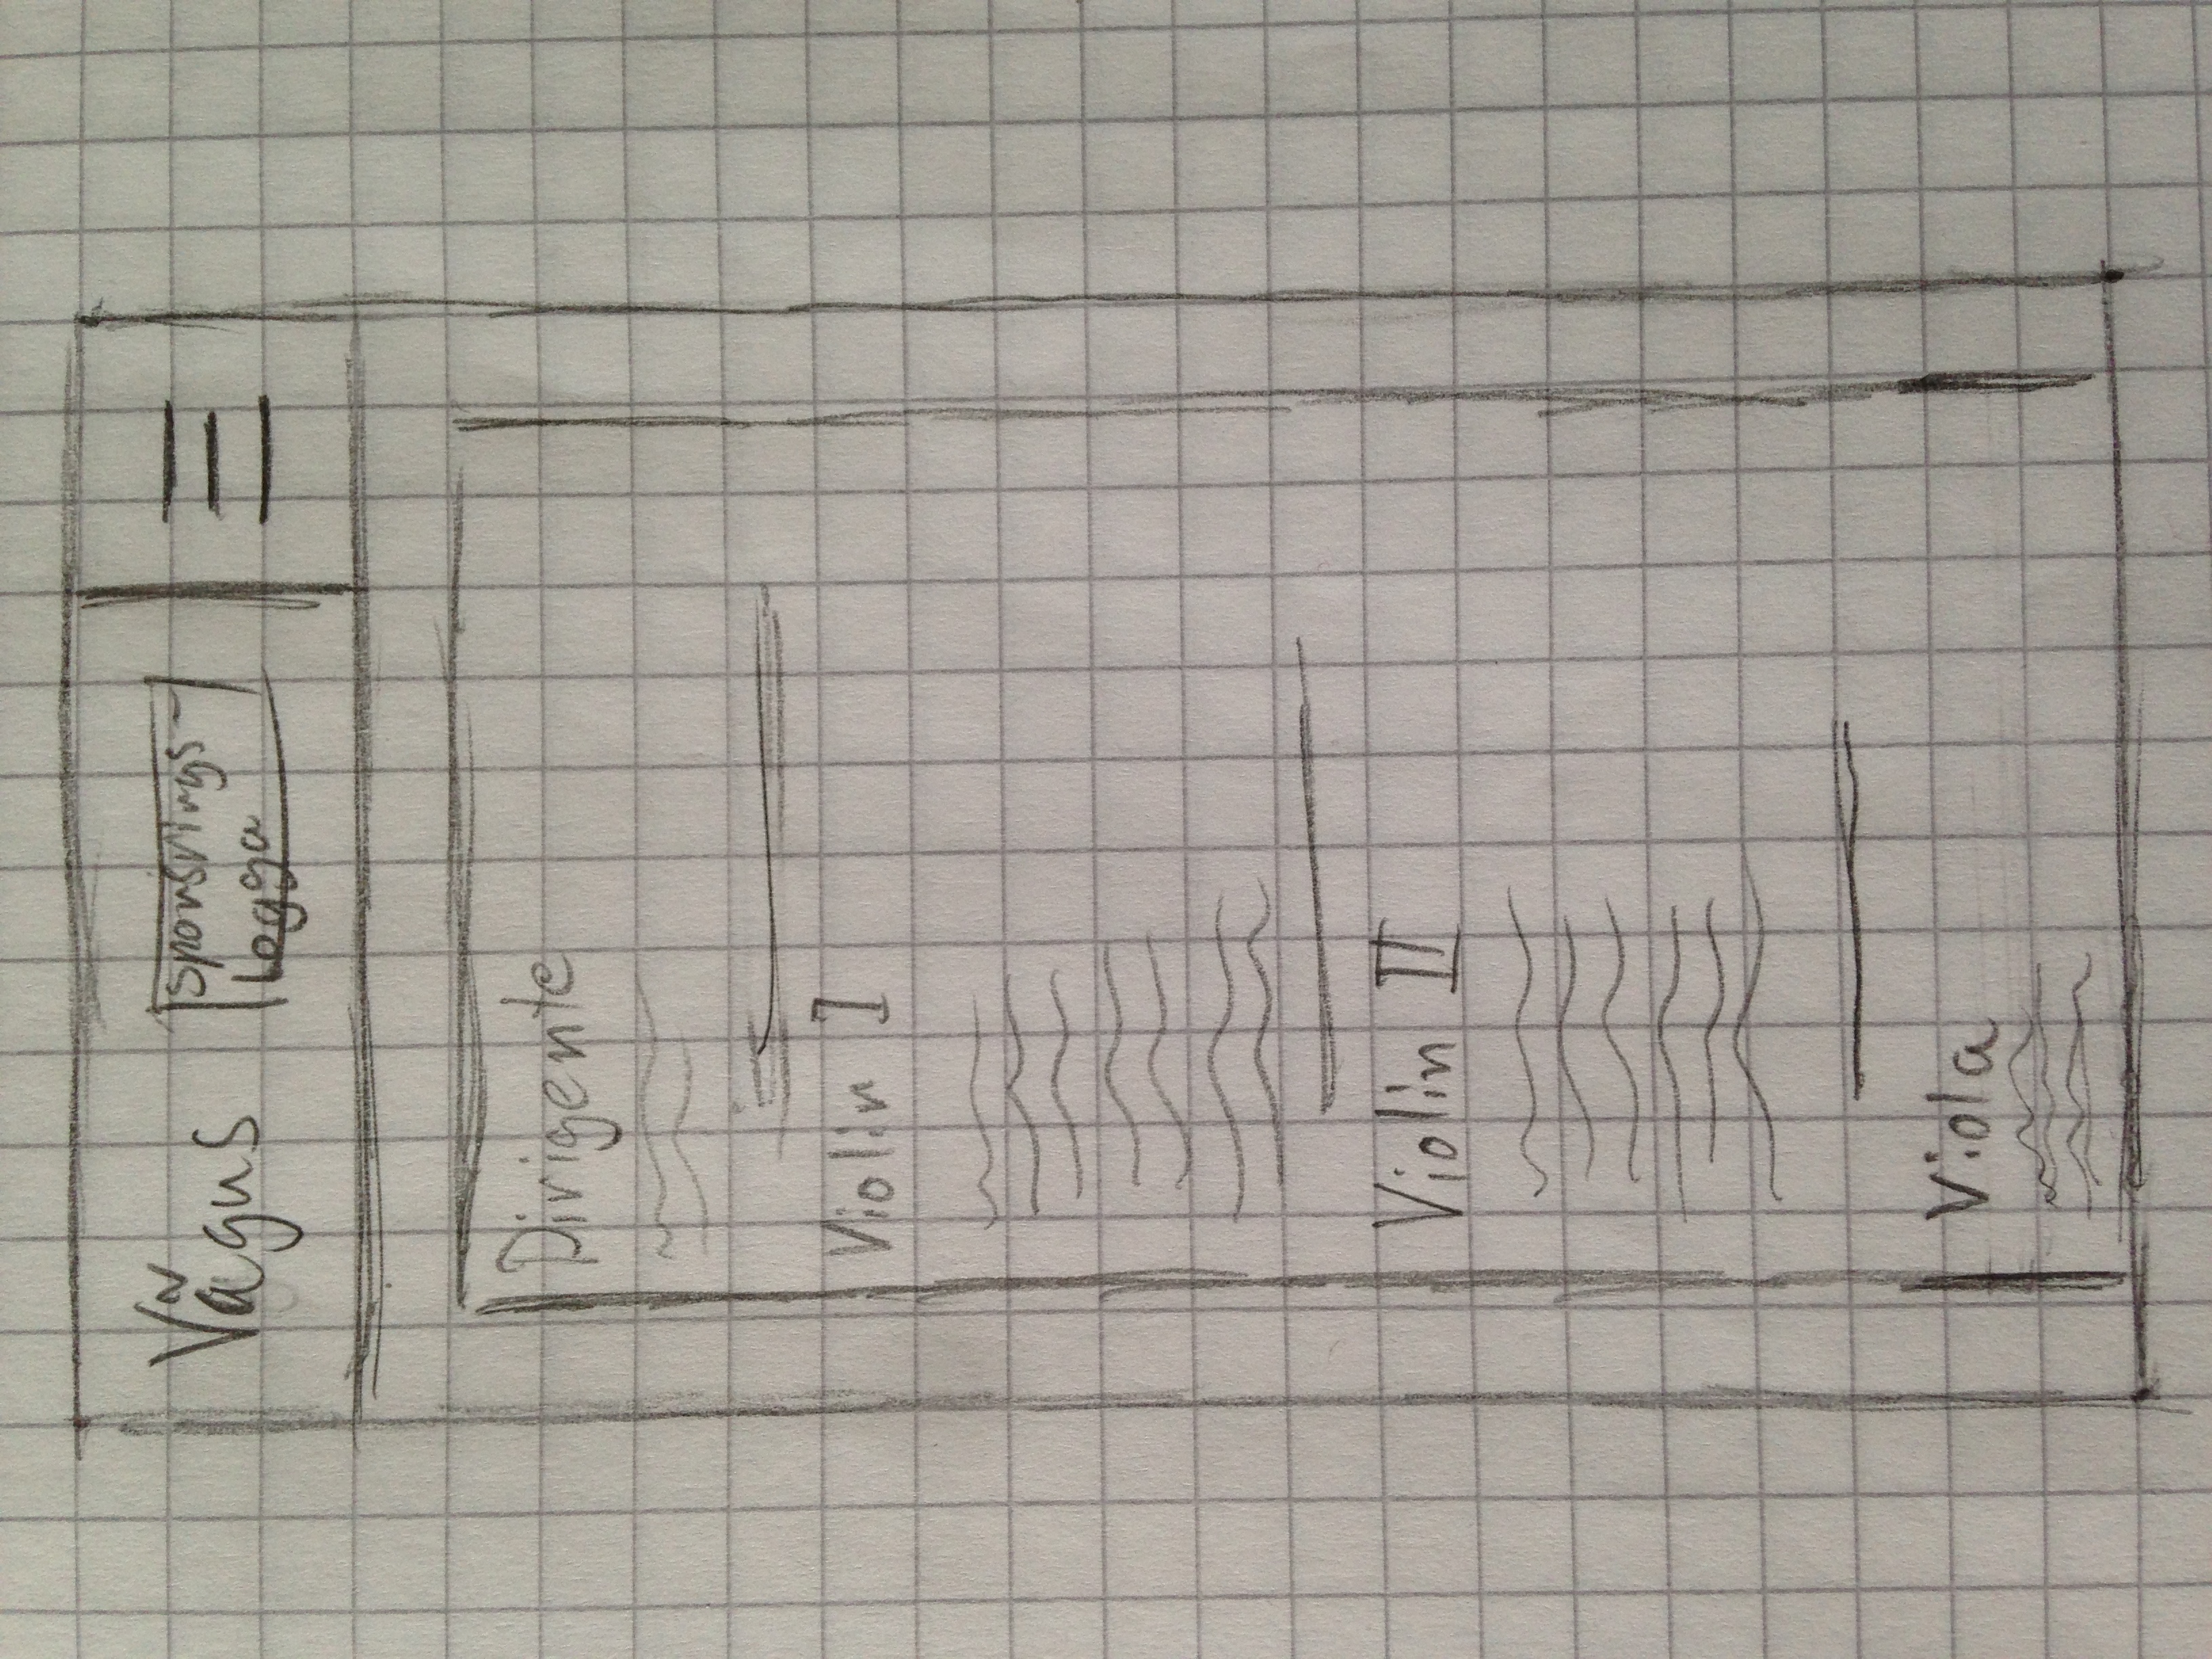 Vågus
sponsrings-
Logga
Dirigente
Violin I
Violin II
Viola